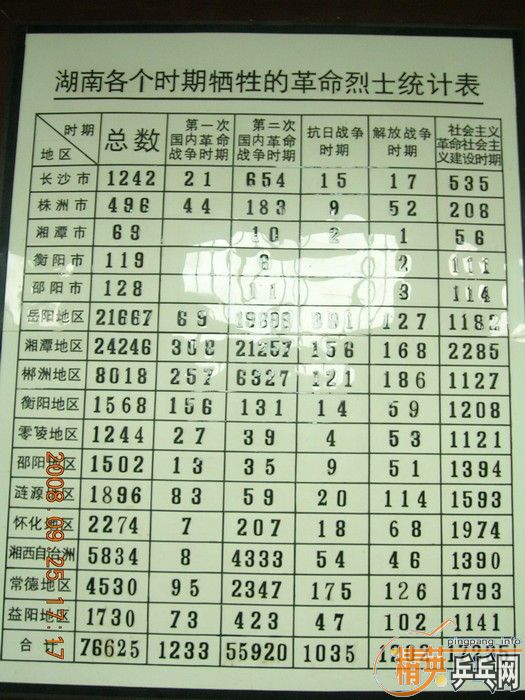 湖南各个时期牺牲的革命烈士统计表
时期 地区 总数 第一次国内革命战争时期 第二次国内革命战争时期 抗日战争时期 解放战争时期 社会主义革命社会主义建设时期
长沙市 1242 21 654 15 17 535
株洲市 496 44 183 9 52 208
湘潭市 69 10 2 1 56
衡阳市 119 6 2 111
邵阳市 128 11 3 114
岳阳地区 21667 69 19898 391 127 1182
湘潭地区 24246 380 21257 156 168 2285
郴洲地区 8018 257 6327 121 186 1127
衡阳地区 1568 156 131 14 59 1208
零陵地区 1244 27 39 4 53 1121
邵阳地区 1502 13 35 9 51 1394
涟源地区 1896 83 59 20 114 1593
怀化地区 2274 7 207 18 68 1974
湘西自治洲 5834 8 4333 54 46 1390
常德地区 4530 95 2347 175 126 1793
益阳地区 1730 73 423 47 102 1141
合计 76625 1233 55920 1035
2008.09.25 17:17
pingpang.info
精英乒乓网